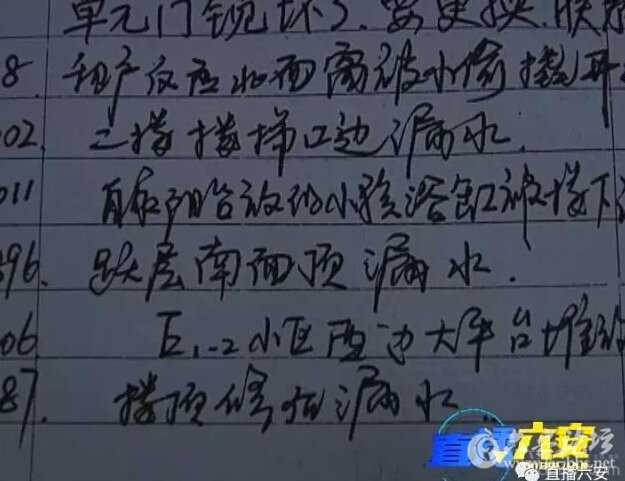 单元门锁坏了.要更换.联系
8. 租户反应北面窗被小偷撬开
02. 二楼楼梯口边漏水.
011 自家阳台放的小孩浴缸被楼下
96. 跃层南面顶漏水.
06 E1-2小区西边大平台堆放
87. 楼顶修后漏水
直播六安
直播六安